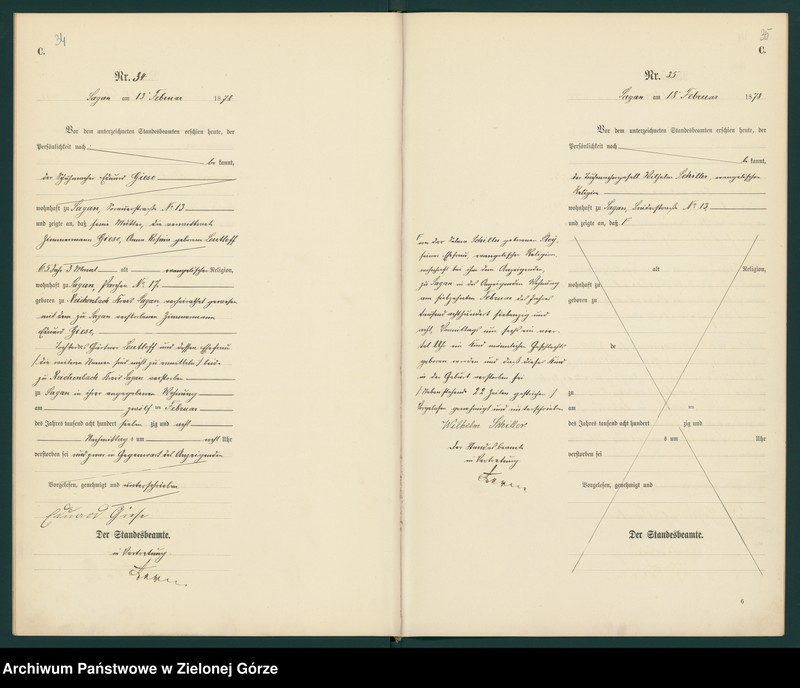 34
C.
Nr. 34
Sagan am 13ᵗ Februar 1878
Vor dem unterzeichneten Standesbeamten erschien heute, der
Persönlichkeit nach
be kannt,
der Eduard Giese
wohnhaft zu Sagan, Sorauerstraße Nº 13
und zeigte an, daß seine Mutter, die verwittwete
Zimmermann Giese, Anna Rosina geborene Leutloff
65 Jahr 3 Monat alt evangelischer Religion,
wohnhaft zu Sagan, Nº 17
geboren zu Reichenbach Kreis Sagan verheirathet gewesen
mit dem zu Sagan verstorbenen Zimmermann
Eduard Giese,
Tochter des Gärtner Leutloff und dessen Ehefrau
zu Reichenbach Kreis Sagan verstorben
zu Sagan in ihrer angegebenen Wohnung
am zwölf ten Februar
des Jahres tausend acht hundert sieben zig und acht
Nachmittag s um acht Uhr
verstorben sei und zwar in Gegenwart des Anzeigenden
Vorgelesen, genehmigt und unterschrieben
Eduard Giese
Der Standesbeamte.
in Vertretung
35
C.
Nr. 35
Sagan am 18 Februar 1878
Vor dem unterzeichneten Standesbeamten erschien heute, der
Persönlichkeit nach
be kannt,
der Wilhelm Schiller, evangelischer
Religion
wohnhaft zu Sagan, Nº 12
und zeigte an, daß
alt Religion,
wohnhaft zu
geboren zu
de
zu
am ten
des Jahres tausend acht hundert zig und
s um Uhr
verstorben sei
Vorgelesen, genehmigt und
Der Standesbeamte.
6
von der Schiller geborenen
seiner Ehefrau, evangelischer Religion
wohnhaft bei ihm dem Anzeigenden,
zu Sagan in des Anzeigenden Wohnung
am siebzehnten Februar des Jahres
tausend achthundert siebenzig und
acht, Vormittags um sechs ein vier-
tel Uhr ein Kind männlichen Geschlechts
geboren worden und daß dieses Kind
in der Geburt verstorben sei
Nebenstehend 22 Zeilen gestrichen
Vorgelesen genehmigt und unterschrieben
Wilhelm Schiller
Der Standesbeamte
in Vertretung
Archiwum Państwowe w Zielonej Górze